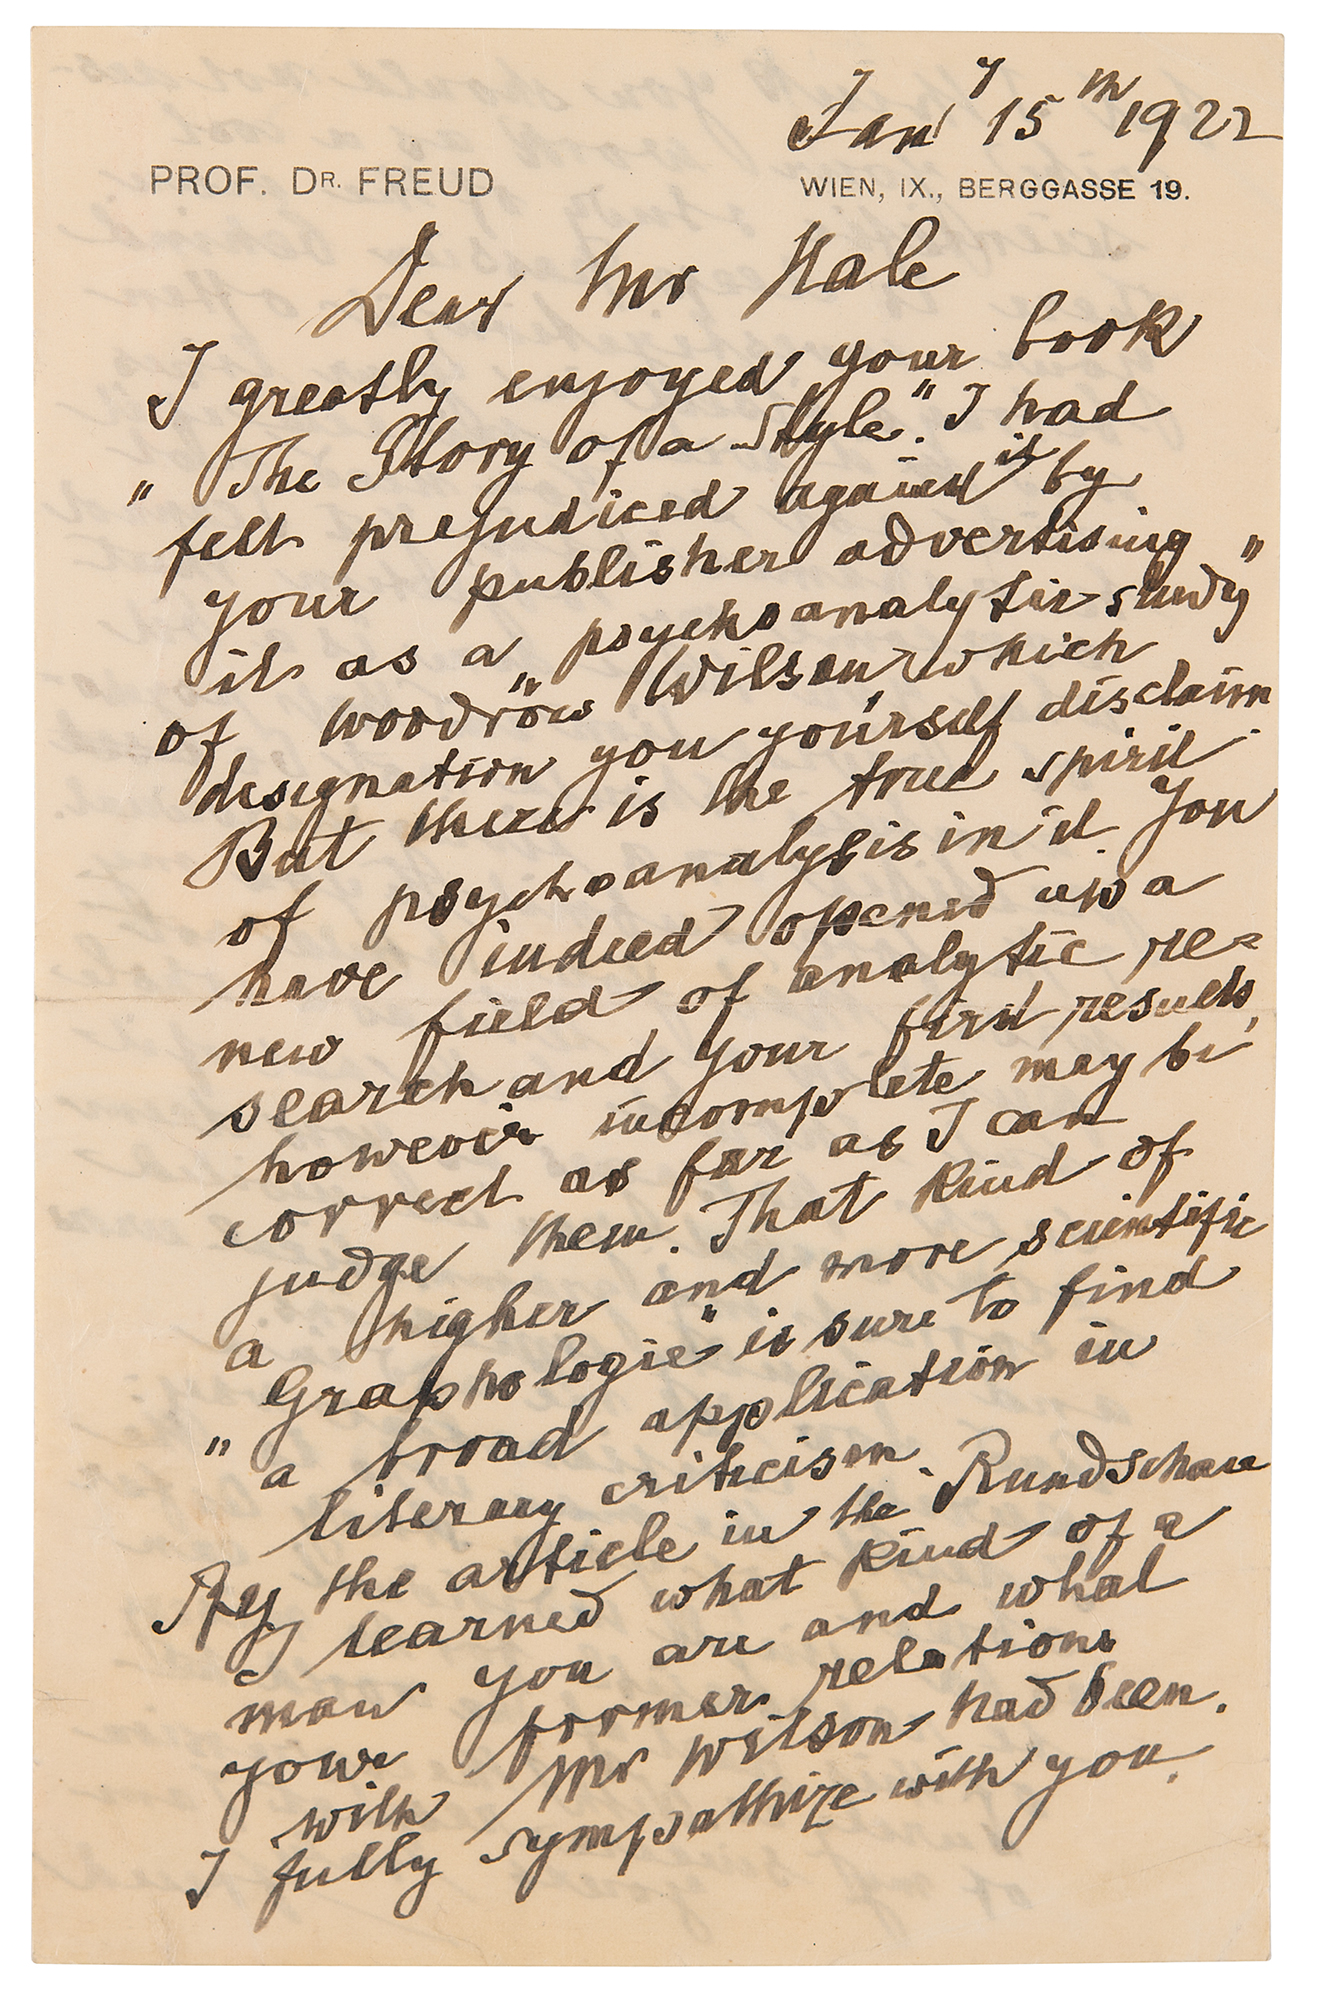 Jan y 15 th 1922
PROF. DR. FREUD
WIEN, IX., BERGGASSE 19.
Dear Mr Hale
I greatly enjoyed your book
"The Story of a Style." I had
felt prejudiced against it by
your publisher advertising
it as a "psychoanalytic study"
of Woodrow Wilson, which
designation you yourself disclaim.
But there is the true spirit
of psychoanalysis in it. You
have indeed opened up a
new field of analytic re=
search and your first results,
however incomplete may be
correct as far as I can
judge them. That kind of
a higher and more scientific
"Graphologie" is sure to find
a broad application in
literary criticism.
By the article in the Rundschau
I learned what kind of a
man you are and what
your former relations
with Mr Wilson had been.
I fully sympathize with you.